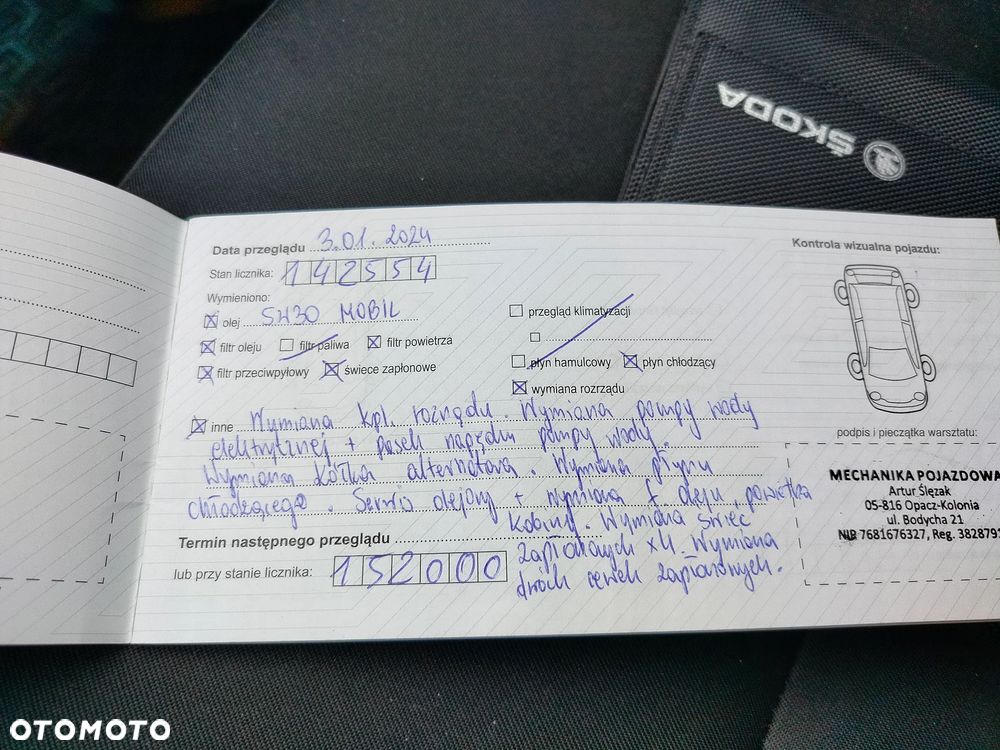 ŠKODA
Data przeglądu 3.01.2024
Stan licznika: 142554
Wymieniono:
olej 5W30 MOBIL
filtr oleju filtr paliwa filtr powietrza
filtr przeciwpyłowy świece zapłonowe
przegląd klimatyzacji
płyn hamulcowy płyn chłodzący
wymiana rozrządu
inne Wymiana kpl. rozrządu. Wymiana pompy wody
elektrycznej + pasek napędu pompy wody.
Wymiana kółka alternatora. Wymiana płynu
chłodzącego. Serwis olejowy + wymiana f. oleju, powietrza
kabiny. Wymiana świec
zapłonowych x4. Wymiana
dwóch cewek zapłonowych.
Termin następnego przeglądu
lub przy stanie licznika: 152000
Kontrola wizualna pojazdu:
podpis i pieczątka warsztatu:
MECHANIKA POJAZDOWA
Artur Ślęzak
05-816 Opacz-Kolonia
ul. Bodycha 21
NIP 7681676327, Reg. 3828791
OTOMOTO